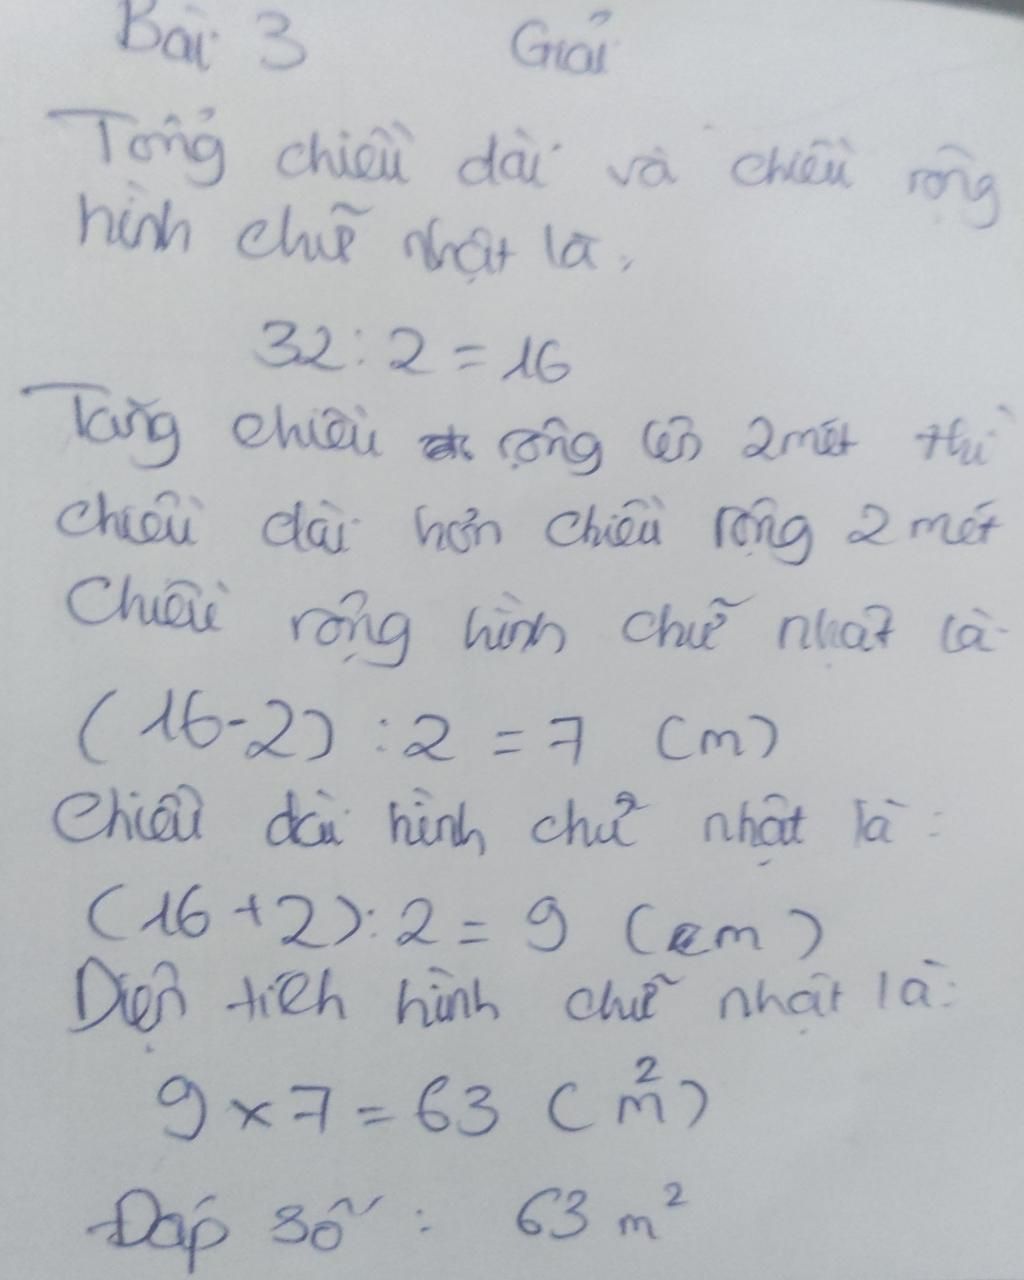 Bài 3 Giải
Tổng chiều dài và chiều rộng
hình chữ nhật là,
32 : 2 = 16
Tăng chiều rộng lên 2 mét thì
chiều dài hơn chiều rộng 2 mét
Chiều rộng hình chữ nhật là
(16-2) : 2 = 7 (m)
Chiều dài hình chữ nhật là :
(16 + 2) : 2 = 9 (m)
Diện tích hình chữ nhật là :
9 x 7 = 63 (m²)
Đáp số : 63 m²